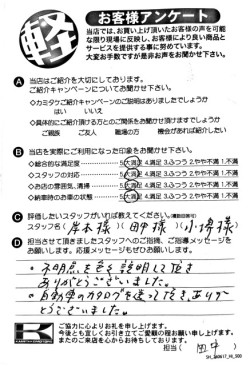 軽
お客様アンケート
当店では、お買い上げ頂いたお客様の声を可能
な限り現場に反映し、お客様により良い商品と
サービスを提供する事に努めています。
大変お手数ですが是非お声をお聞かせ下さい。
A 当店はご紹介を大切にしております。
ご紹介キャンペーンについてお聞かせ下さい。
◇カミタケキャンペーンのご説明はありましたでしょうか
はい いいえ
◇具体的にご紹介頂ける方とのご関係をお聞かせ頂けますでしょうか
ご親族 ご友人 職場の方 機会があれば紹介したい
B 当店を実際にご利用になった印象をお聞かせ下さい。
◇総合的な満足度 5.大満足 4.満足 3.ふつう 2.やや不満 1.不満
◇スタッフの対応 5.大満足 4.満足 3.ふつう 2.やや不満 1.不満
◇お店の雰囲気、清掃 5.大満足 4.満足 3.ふつう 2.やや不満 1.不満
◇納車時のお車の状態 5.大満足 4.満足 3.ふつう 2.やや不満 1.不満
C 評価したいスタッフがいれば教えてください。(複数回答可)
スタッフ名(岸本様)(田中様)(小博様)
D 担当させて頂きましたスタッフへのご指摘、ご指導メッセージを
お願いします。応援メッセージもぜひお願いします。
・不明点を全て説明して頂き
ありがとうございました。
・自動車のカタログを送って頂き、ありが
とうございました。
K
ご協力に心よりお礼を申し上げます。
今後とも宜しくお引き立てご愛顧の程お願い申し上げます。
またのご来店を心からお待ちしております。
担当( 田中 )